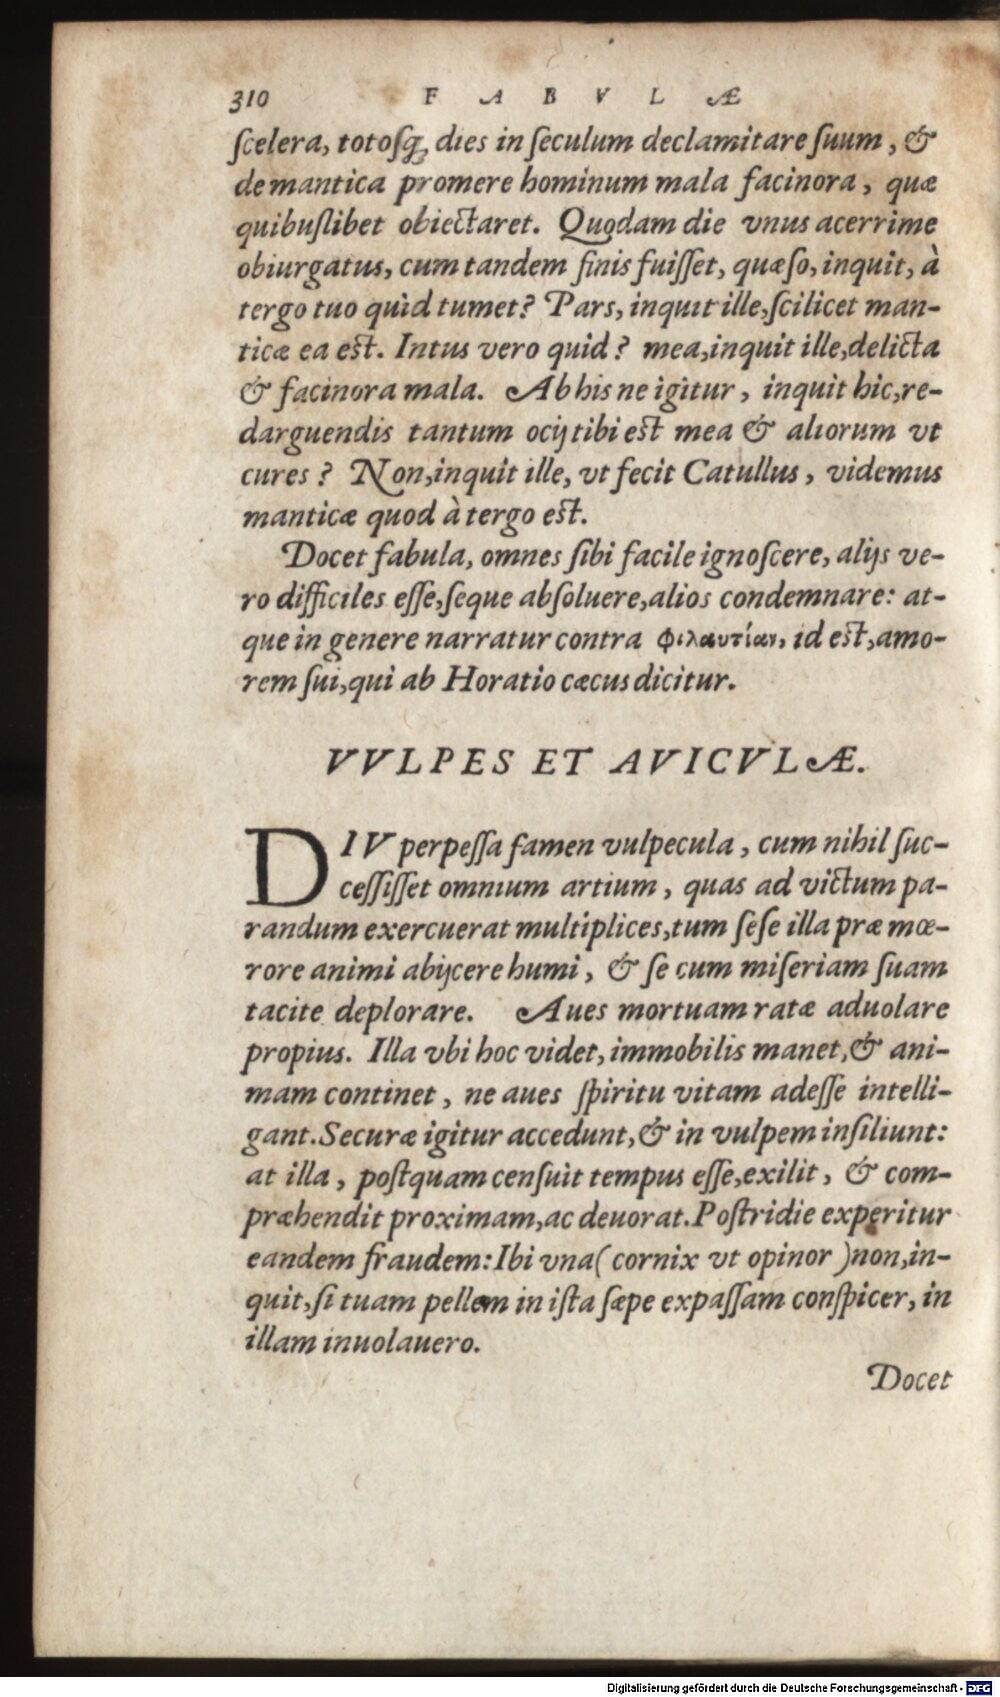 310 FABVLÆ
ſcelera, totoſq́; dies in ſeculum declamitare ſuum, &
de mantica promere hominum mala facinora, quæ
quibuſlibet obiectaret. Quodam die vnus acerrime
obiurgatus, cum tandem finis fuiſſet, quæſo, inquit, à
tergo tuo quìd tumet? Pars, inquit ille, ſcilicet man-
ticæ ea est. Intus vero quid? mea, inquit ille, delicta
& facinora mala. Ab his ne igitur, inquit hic, re-
darguendis tantum ocij tibi est mea & aliorum vt
cures? Non, inquit ille, vt fecit Catullus, videmus
manticæ quod à tergo est.
Docet fabula, omnes ſibi facile ignoſcere, alijs ve-
ro difficiles eſſe, ſeque abſoluere, alios condemnare: at-
que in genere narratur contra φιλαυτίαν, id est, amo-
rem ſui, qui ab Horatio cæcus dicitur.
VVLPES ET AVICVLÆ.
DIV perpeſſa famen vulpecula, cum nihil ſuc-
ceſſiſſet omnium artium, quas ad victum pa-
randum exercuerat multiplices, tum ſeſe illa præ mœ-
rore animi abijcere humi, & ſe cum miſeriam ſuam
tacite deplorare. Aues mortuam ratæ aduolare
propius. Illa vbi hoc videt, immobilis manet, & ani-
mam continet, ne aues ſpiritu vitam adeſſe intelli-
gant. Securæ igitur accedunt, & in vulpem inſiliunt:
at illa, poſtquam cenſuit tempus eſſe, exilit, & com-
præhendit proximam, ac deuorat. Poſtridie experitur
eandem fraudem: Ibi vna (cornix vt opinor) non, in-
quit, ſi tuam pellem in iſta ſæpe expaſſam conſpicer, in
illam inuolauero.
Docet
Digitalisierung gefördert durch die Deutsche Forschungsgemeinschaft - DFG